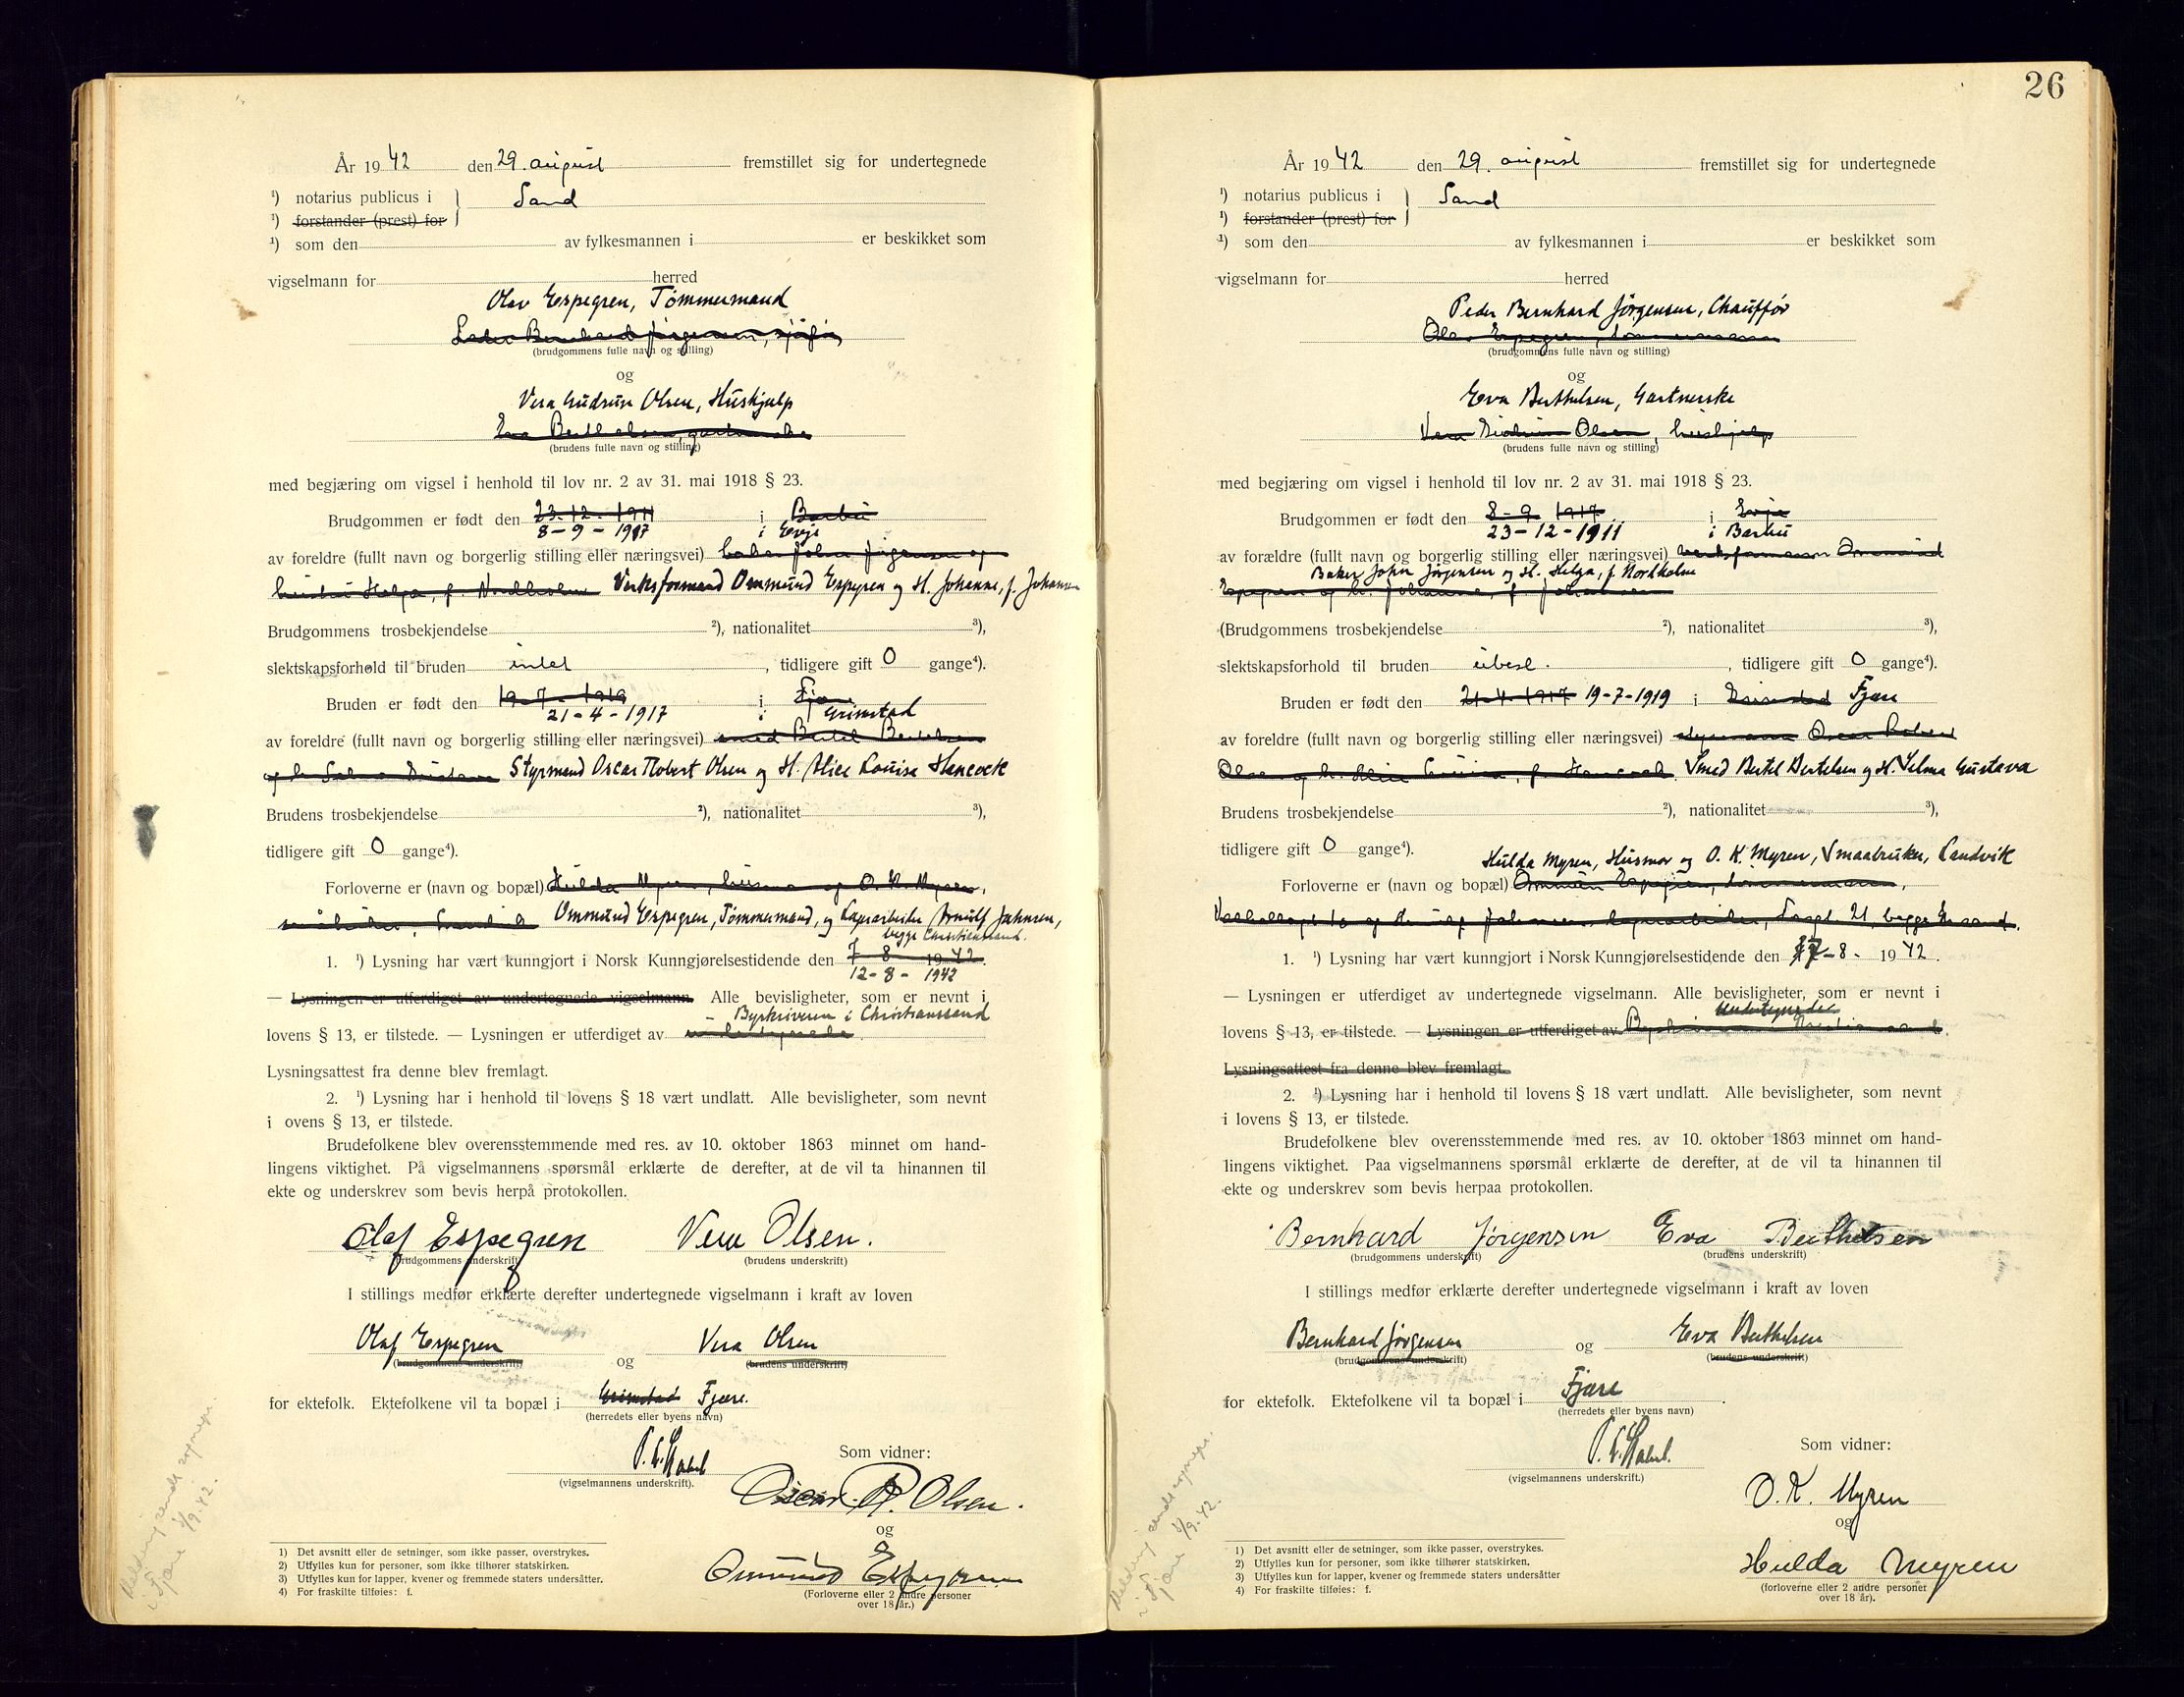 År 1942 den 29. august fremstillet sig for undertegnede
¹) notarius publicus i Sand
¹) forstander (prest) for
¹) som den av fylkesmannen i er beskikket som
vigselmann for herred
Olav Espegren, Tömmermand
Bernhard Jørgensen,
(brudgommens fulle navn og stilling)
og
Vera Gudrun Olsen, Huskjelp
Eva Berthelsen, gartnerske
(brudens fulle navn og stilling)
med begjæring om vigsel i henhold til lov nr. 2 av 31. mai 1918 § 23.
Brudgommen er født den 23-12-1911 i Barbu
8-9-1917 i Evje
av foreldre (fullt navn og borgerlig stilling eller næringsvei) baker John Jørgensen og
hustru Helga, f. Nordholm Verksformand Ommund Espegren og H. Johanne, f. Johansen
Brudgommens trosbekjendelse ²), nationalitet ³),
slektskapsforhold til bruden intet, tidligere gift 0 gange⁴).
Bruden er født den 19-7-1919 i Fjære
21-4-1917 i Grimstad
av foreldre (fullt navn og borgerlig stilling eller næringsvei) smed Bertel Bertelsen
og h. Selma Gustava Styrmand Oscar Robert Olsen og H. Alice Louise Hancock
Brudens trosbekjendelse ²), nationalitet ³),
tidligere gift 0 gange⁴).
Forloverne er (navn og bopæl) Hulda Myren, husmor og O. K. Myren,
småbruker, Landvik Ommund Espegren, Tömmermand, og Lagerarbeider Arnulf Johnsen,
begge Christianssand.
1. ¹) Lysning har vært kunngjort i Norsk Kunngjørelsestidende den 7-8 1942.
12-8-1942
— Lysningen er utferdiget av undertegnede vigselmann. Alle bevisligheter, som er nevnt i
- Byskriveren i Christianssand
lovens § 13, er tilstede. — Lysningen er utferdiget av undertegnede
Lysningsattest fra denne blev fremlagt.
2. ¹) Lysning har i henhold til lovens § 18 vært undlatt. Alle bevisligheter, som nevnt
i ovens § 13, er tilstede.
Brudefolkene blev overensstemmende med res. av 10. oktober 1863 minnet om hand-
lingens viktighet. På vigselmannens spørsmål erklærte de derefter, at de vil ta hinannen til
ekte og underskrev som bevis herpå protokollen.
Olaf Espegren Vera Olsen.
(brudgommens underskrift) (brudens underskrift)
I stillings medfør erklærte derefter undertegnede vigselmann i kraft av loven
Olaf Espegren og Vera Olsen
(brudgommens underskrift) (brudens underskrift)
for ektefolk. Ektefolkene vil ta bopæl i Grimstad Fjære.
(herredets eller byens navn)
(vigselmannens underskrift).
Som vidner:
Oscar R. Olsen.
og
Ommund Espegren
(Forloverne eller 2 andre personer
over 18 år.)
1) Det avsnitt eller de setninger, som ikke passer, overstrykes.
2) Utfylles kun for personer, som ikke tilhører statskirken.
3) Utfylles kun for lapper, kvener og fremmede staters undersåtter.
4) For fraskilte tilføies: f.
Melding sendt sognepr.
i Fjære 3/9.42.
26
År 1942 den 29. august fremstillet sig for undertegnede
¹) notarius publicus i Sand
¹) forstander (prest) for
¹) som den av fylkesmannen i er beskikket som
vigselmann for herred
Peder Bernhard Jørgensen, Chauffør
Olav Espegren, tømmermann
(brudgommens fulle navn og stilling)
og
Eva Berthelsen, Gartnerske
Vera Gudrun Olsen, huskjelp
(brudens fulle navn og stilling)
med begjæring om vigsel i henhold til lov nr. 2 av 31. mai 1918 § 23.
Brudgommen er født den 8-9 1917 i Evje
23-12-1911 i Barbu
av forældre (fullt navn og borgerlig stilling eller næringsvei) verksformann Ommund
Baker John Jørgensen og H. Helga, f. Nordholm
Espegren og h. Johanne, f. Johansen
(Brudgommens trosbekjendelse ²), nationalitet ³),
slektskapsforhold til bruden ubesl., tidligere gift 0 gange⁴).
Bruden er født den 21-4-1917 19-7-1919 i Grimstad Fjære
av foreldre (fullt navn og borgerlig stilling eller næringsvei) styrmann Oscar Robert
Olsen og h. Alice Louise, f. Hancock. Smed Bertel Bertelsen og H. Selma Gustava
Brudens trosbekjendelse ²), nationalitet ³),
tidligere gift 0 gange⁴).
Hulda Myren, Husmor og O. K. Myren, Smaabruker, Landvik
Forloverne er (navn og bopæl) Ommund Espegren, tømmermann,
og Johnsen, lagerarbeider, 21, begge Kr.sand.
1. ¹) Lysning har vært kunngjort i Norsk Kunngjørelsestidende den -8- 1942.
— Lysningen er utferdiget av undertegnede vigselmann. Alle bevisligheter, som er nevnt i
Undertegnede
lovens § 13, er tilstede. — Lysningen er utferdiget av Byskriveren i Kristiansand.
Lysningsattest fra denne blev fremlagt.
2. ¹) Lysning har i henhold til lovens § 18 vært undlatt. Alle bevisligheter, som nevnt
i lovens § 13, er tilstede.
Brudefolkene blev overensstemmende med res. av 10. oktober 1863 minnet om hand-
lingens viktighet. Paa vigselmannens spørsmål erklærte de derefter, at de vil ta hinannen til
ekte og underskrev som bevis herpaa protokollen.
Bernhard Jörgensen Eva Berthelsen
(brudgommens underskrift) (brudens underskrift)
I stillings medfør erklærte derefter undertegnede vigselmann i kraft av loven
Bernhard Jørgensen og Eva Berthelsen
(brudgommens underskrift) (brudens underskrift)
for ektefolk. Ektefolkene vil ta bopæl i Fjære.
(herredets eller byens navn)
(vigselmannens underskrift.)
Som vidner:
O. K. Myren
og
Hulda Myren
(forloverne eller 2 andre personer
over 18 år).
1) Det avsnitt eller de setninger, som ikke passer, overstrykes.
2) Utfylles kun for personer, som ikke tilhører statskirken.
3) Utfylles kun for lapper, kvener og fremmede staters undersåtter
4) For fraskilte tilføies: f.
Melding sendt sognepr.
i Fjære 3/9.42.